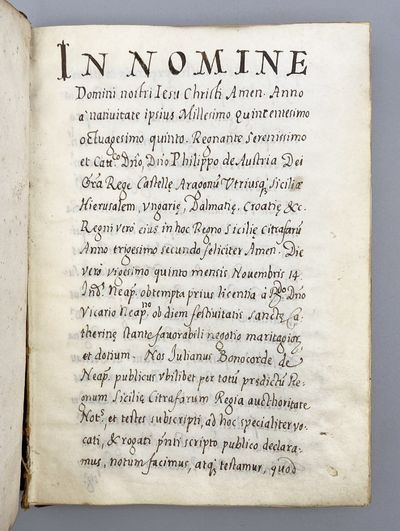 IN NOMINE
Domini nostri Iesu Christi Amen. Anno
a nativitate ipsius Millesimo quintentesimo
octuagesimo quinto. Regnante Serenissimo
et Catt.co Dño, Dño Philippo de Austria Dei
Grã Rege Castellę Aragonũ Utriusq; Siciliæ
Hierusalem, Vngarię, Dalmatię, Croatię &c.
Regni verò eius in hoc Regno Sicilię Citrafarũ
Anno trigesimo secundo feliciter Amen. Die
verò vigesimo quinto mensis Novembris 14.
Ind.s Neap. obtempta prius licentia à Dño
Vicario Neap.no ob diem festivitatis Sanctę Ca-
therinę stante favorabili negotio maritagior,
et dotium. Nos Iulianus Bonocorde de
Neap. publicus vbilibet per totũ predictũ Re-
gnum Sicilię Citrafarum Regia aucthoritate
Not.s, et testes subscripti, ad hoc specialiter vo-
cati, & rogati pñti scripto publico declara-
mus, notum facimus, atq; testamur, quod